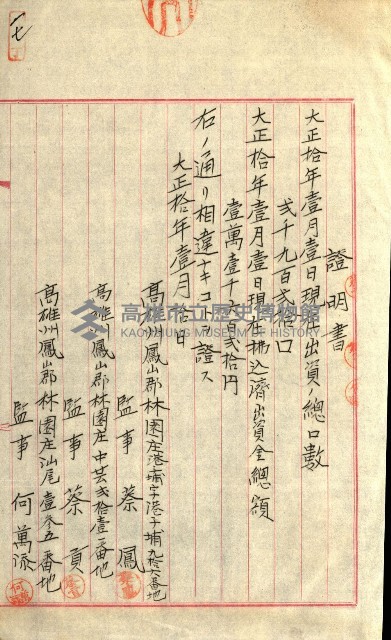 證明書
大正拾年壹月壹日現在出資ノ總口數
貳千九百貳拾口
大正拾年壹月壹日現在拂込濟出資金總額
壹萬壹千六百貳拾円
右ノ通リ相違ナキコトヲ證ス
大正拾年壹月 日
高雄州鳳山郡林園庄港埔字港子埔九拾六番地
監事 蔡 鳳
高雄州鳳山郡林園庄中芸貳拾壹番地
監事 蔡 貢
高雄州鳳山郡林園庄汕尾壹參五番地
監事 何萬添
高雄市立歷史博物館
KAOHSIUNG MUSEUM OF HISTORY